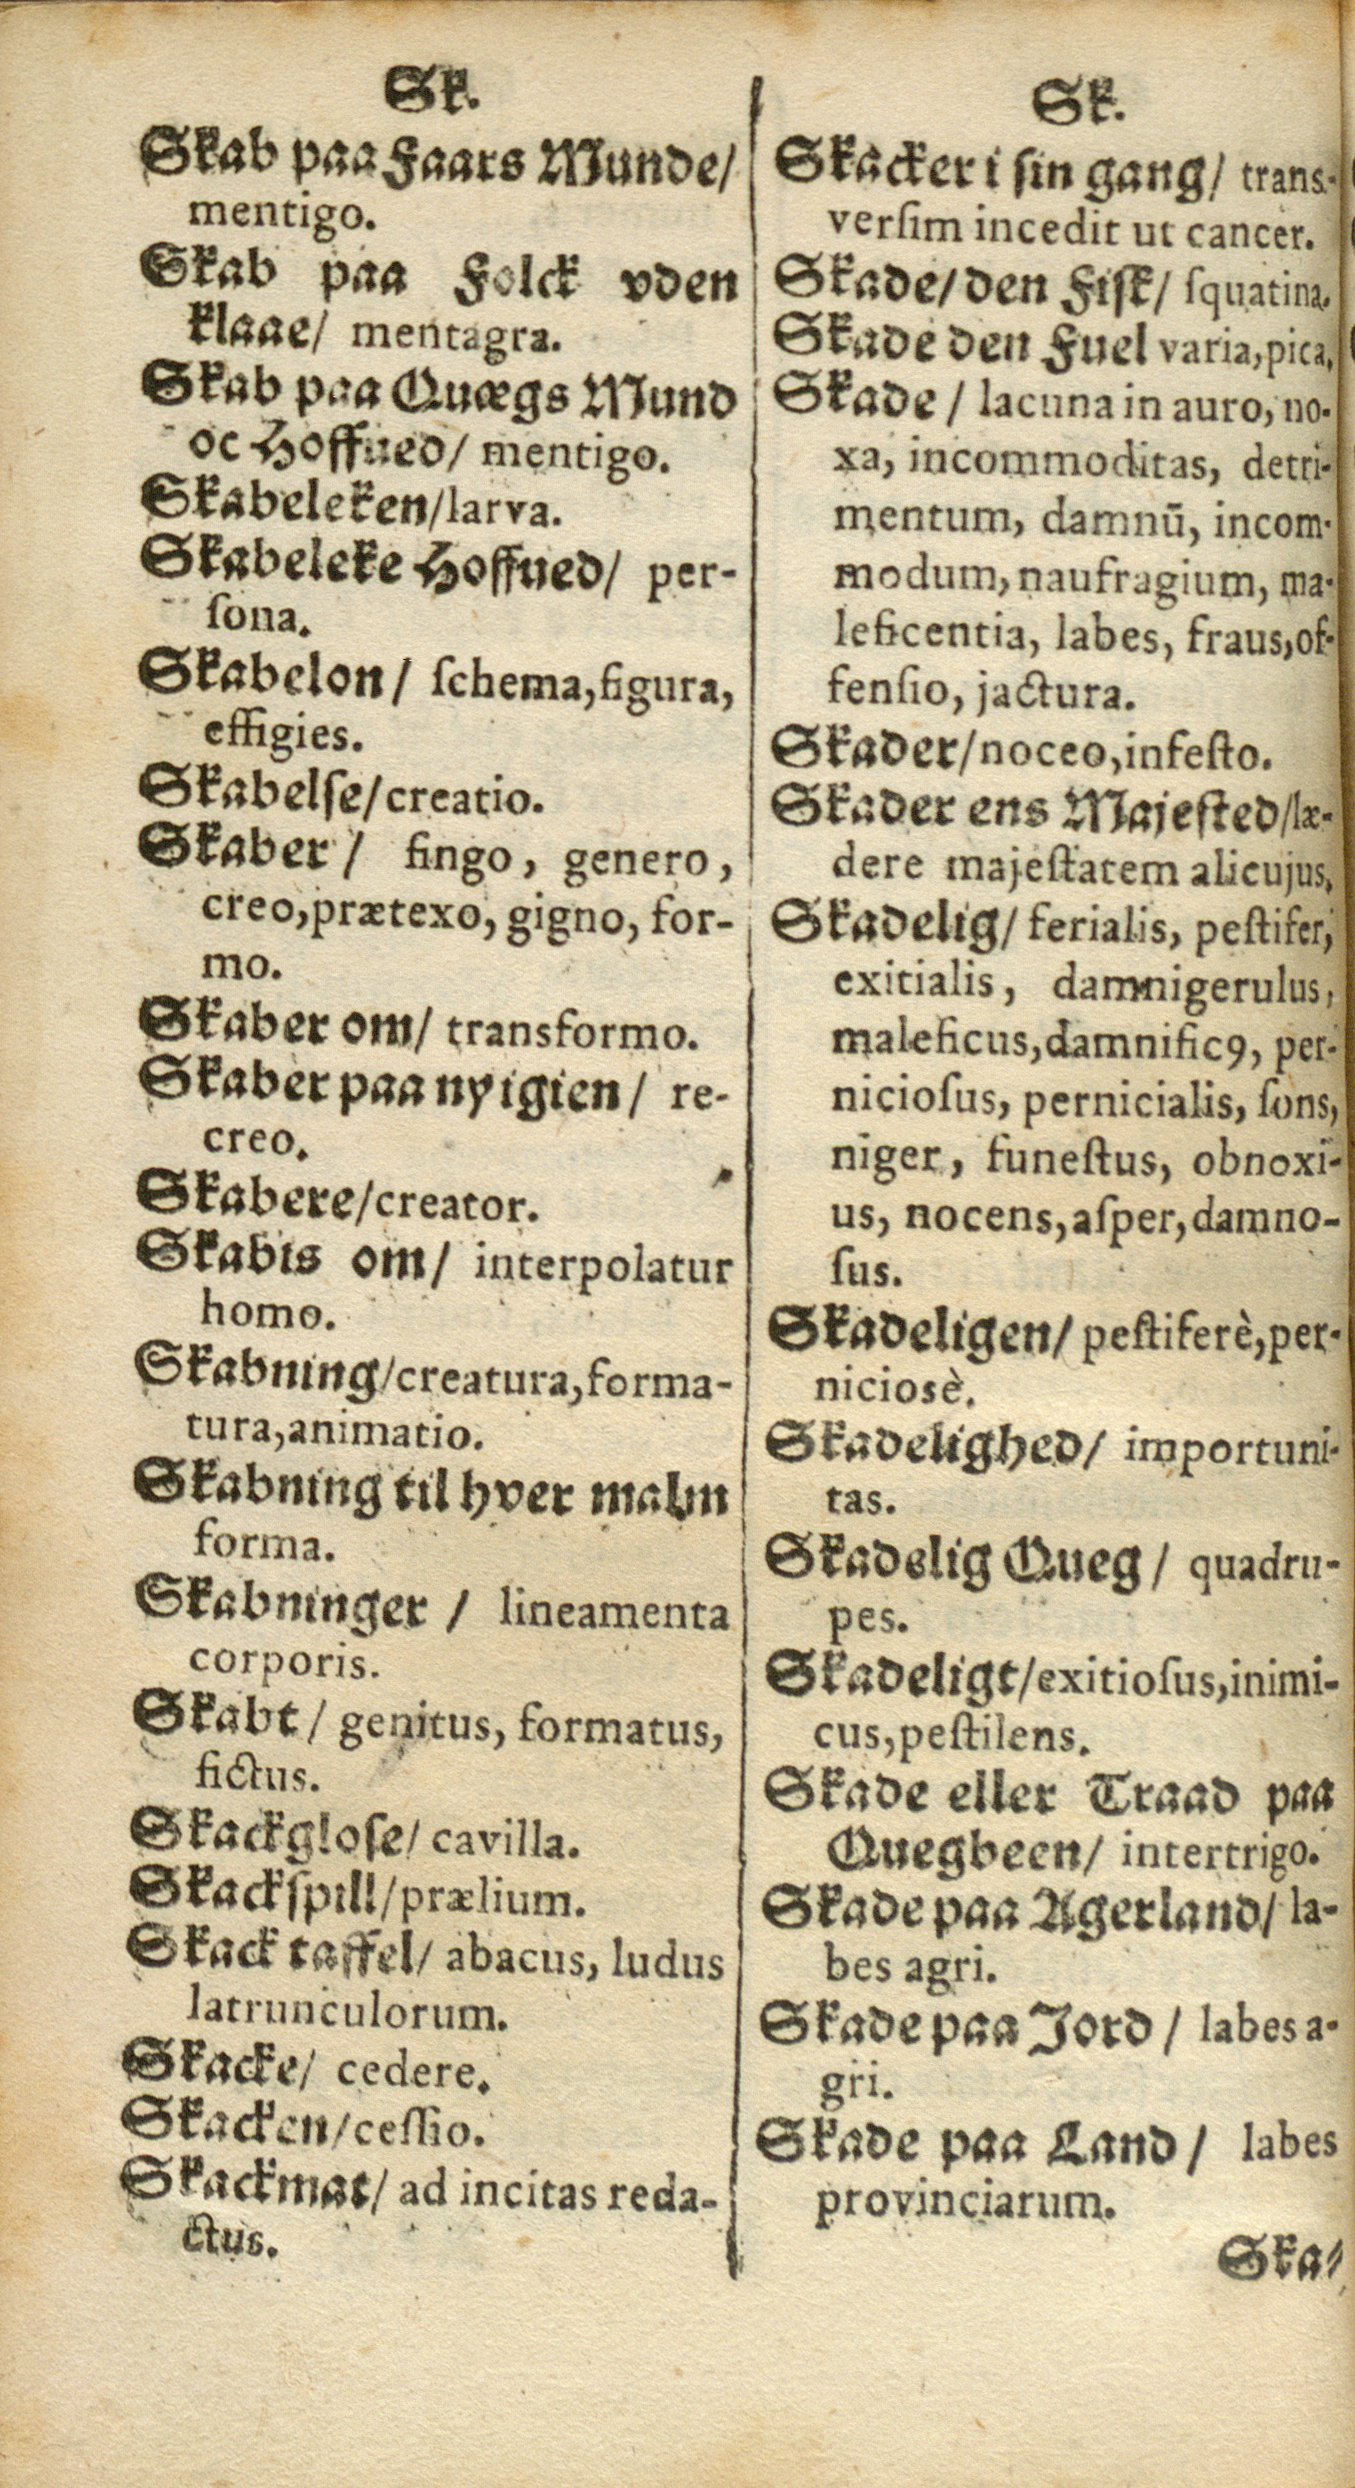 Sk.
Skab paa Faars Munde/
mentigo.
Skab paa Folck vden
klaae/ mentagra.
Skab paa Quægs Mund
oc Hoffued/ mentigo.
Skabeleken/larva.
Skabeleke Hoffued/ per-
ſona.
Skabelon/ ſchema,figura,
effigies.
Skabelſe/creatio.
Skaber/ fingo, genero,
creo,prætexo, gigno, for-
mo.
Skaber om/ transformo.
Skaber paa ny igien/ re-
creo.
Skabere/creator.
Skabis om/ interpolatur
homo.
Skabning/creatura,forma-
tura,animatio.
Skabning til hver malm
forma.
Skabninger / lineamenta
corporis.
Skabt / genitus, formatus,
fictus.
Skackgloſe/ cavilla.
Skackſpill/prælium.
Skack taffel/ abacus, ludus
latrunculorum.
Skacke/ cedere.
Skacken/ceſſio.
Skackmat/ ad incitas reda-
ctus.
Sk.
Skacker i ſin gang/ trans-
verſim incedit ut cancer.
Skade/den Fiſk/ ſquatina.
Skade den Fuel varia,pica.
Skade / lacuna in auro, no-
xa, incommoditas, detri-
mentum, damnū, incom-
modum,naufragium, ma-
leficentia, labes, fraus,of-
fenſio, jactura.
Skader/noceo,infeſto.
Skader ens Majeſted/læ-
dere majeſtatem alicujus,
Skadelig/ ferialis, peſtifer,
exitialis, damnigerulus,
maleficus,damnificꝯ, per-
nicioſus, pernicialis, ſons,
niger, funeſtus, obnoxi-
us, nocens,aſper,damno-
ſus.
Skadeligen/ peſtiferè,per-
niciosè.
Skadelighed/ importuni-
tas.
Skadelig Queg/ quadru-
pes.
Skadeligt/exitioſus,inimi-
cus,peſtilens.
Skade eller Traad paa
Quegbeen/ intertrigo.
Skade paa Agerland/ la-
bes agri.
Skade paa Jord / labes a-
gri.
Skade paa Land / labes
provinciarum.
Ska-